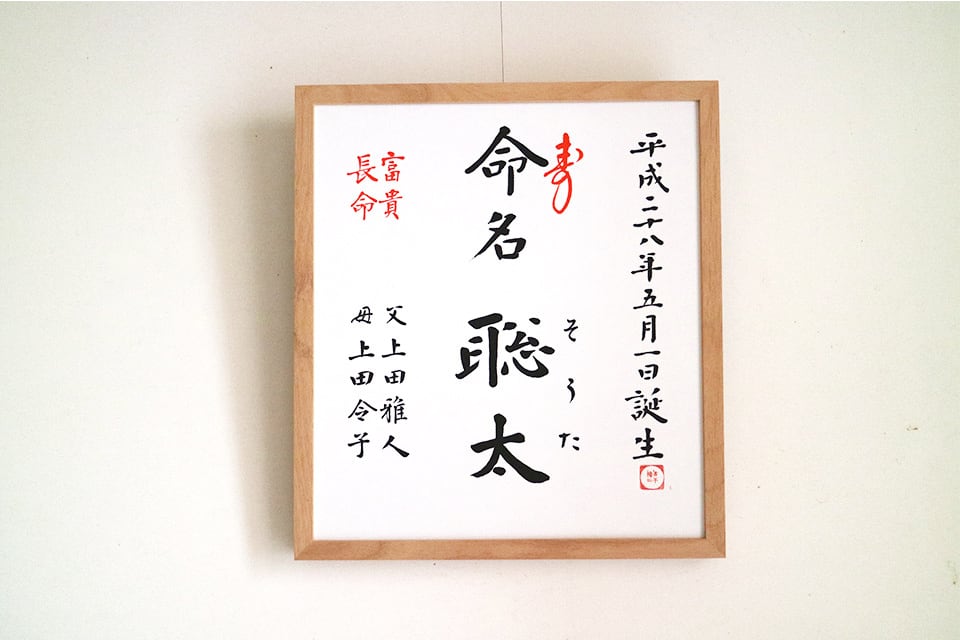 平成二十八年五月一日誕生
寿
命名 聡太
そうた
富貴
長命
父 上田雅人
母 上田令子